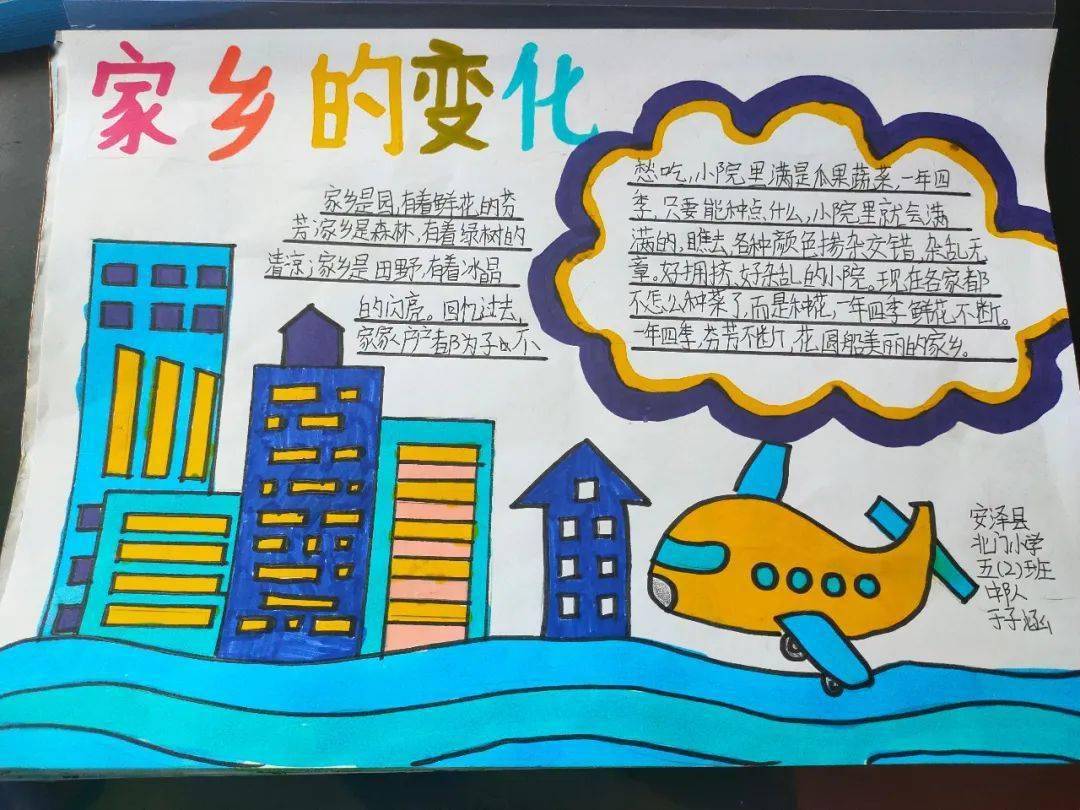 家乡的变化
家乡是园,有着鲜花的芬
芳;家乡是森林,有着绿树的
清凉;家乡是田野,有着冰晶
的闪亮。回忆过去,
家家户户都为了口不
愁吃,小院里满是瓜果蔬菜,一年四
季,只要能种点什么,小院里就会满
满的,瞧去,各种颜色扬杂交错,杂乱无
章。好拥挤、好杂乱的小院。现在各家都
不怎么种菜了,而是种花,一年四季鲜花不断。
一年四季,芬芳不断,花圆般美丽的家乡。
安泽县
北门小学
五(2)班
中队
于子涵